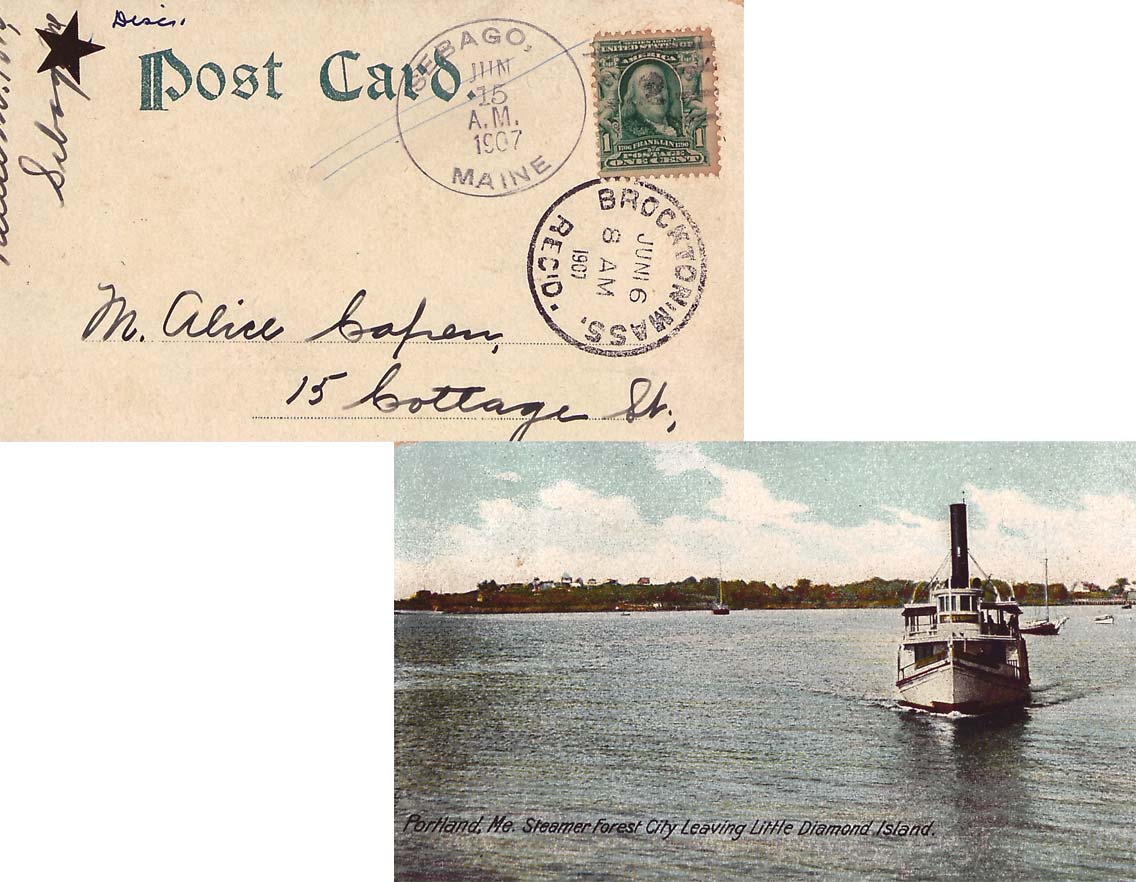 Disc.
Post Card.
SEBAGO,
JUN
15
A.M.
1907
MAINE
SERIES 1902
UNITED STATES OF
AMERICA
1 1
1706 FRANKLIN 1790
POSTAGE
ONE CENT
BROCKTON, MASS.
JUN 16
8 AM
1907
REC'D.
Sebago
M. Alice Capen,
15 Cottage St.,
Portland, Me. Steamer Forest City Leaving Little Diamond Island.